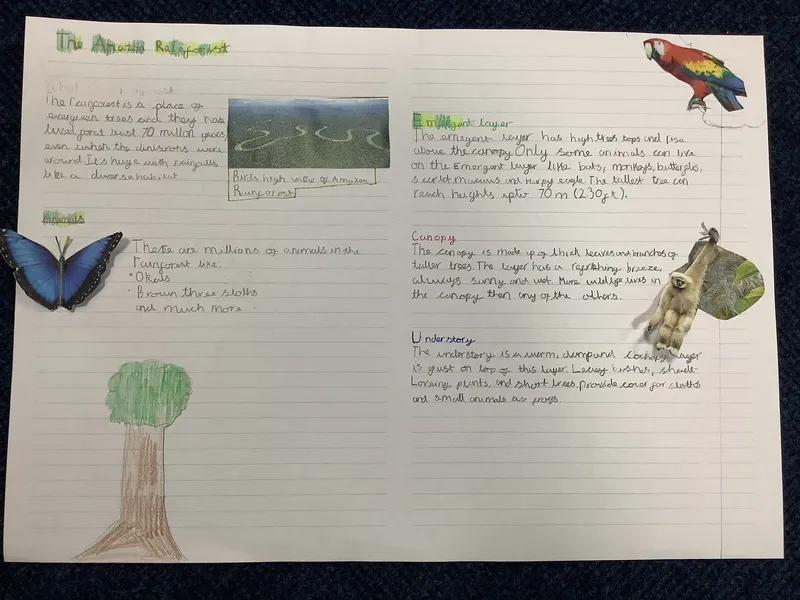 The Amazon Rainforest
The rainforest is a place of
evergreen trees and they have
lived for at least 70 million years
even when the dinisours were
around. It's huge with rainfalls
like a diverse habitat.
Birds high view of Amazon
Rainforest
Animals
These are millions of animals in the
rainforest like:
• Okais
• Brown three sloths
and much more
Emergent layer
The emergent layer has high trees tops and rise
above the canopy. Only some animals can live
on the Emergent layer like bats, monkeys, butterflis,
scarlet macaws and Harpy eagle. The tallest tree can
reach heights upto 70m (230ft).
Canopy
The canopy is made up of thick leaves and branches of
taller trees. The layer has a refreshing breeze,
always sunny and wet. More wildlife lives in
the canopy then any of the others.
Understory
The understory is a warm, damp and layer
is just on top of this layer. Leavy bushes, shade-
Loveing plants, and short trees provide cover for sloths
and small animals as frogs.